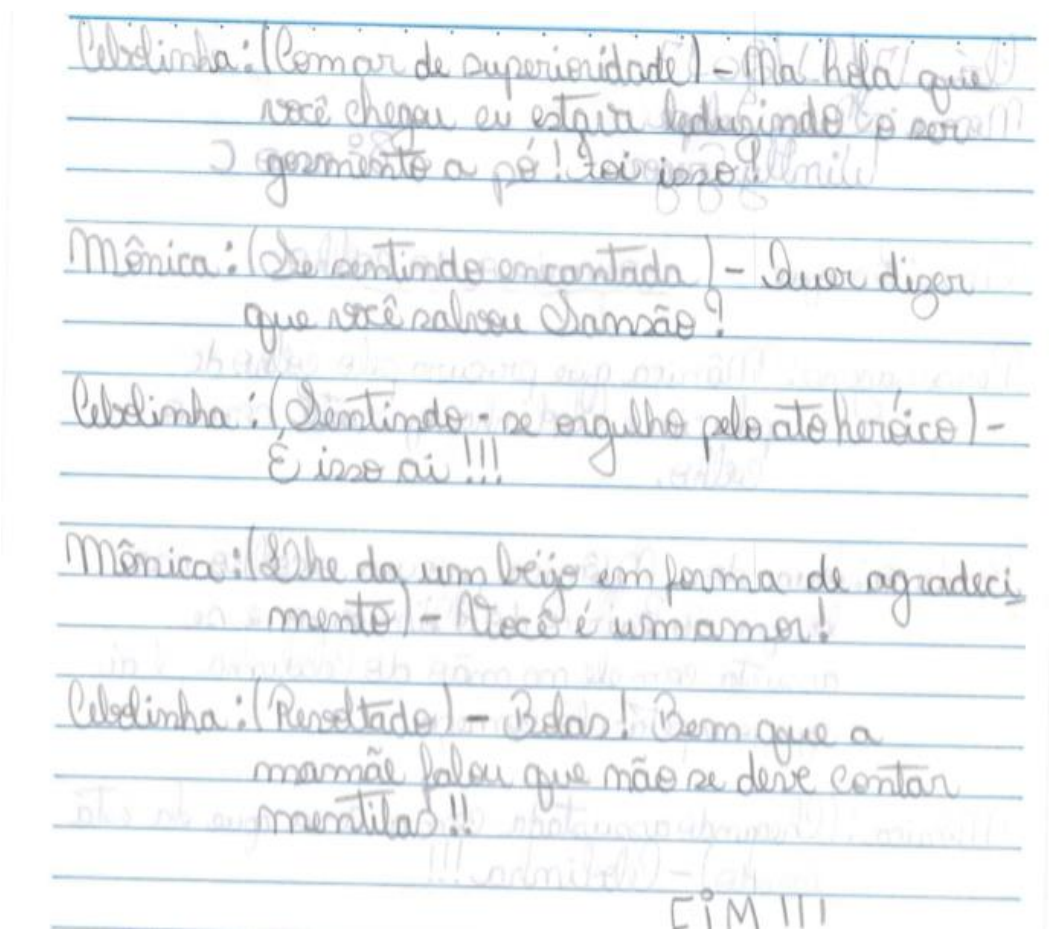 Cebolinha: (Com ar de superioridade) - Na hola que
você chegou eu estava leduzindo o ser
gosmento a pó! Foi isso!
Mônica: (Se sentindo encantada) - Quer dizer
que você salvou Sansão?
Cebolinha: (Sentindo-se orgulho pelo ato heróico) -
É isso ai!!!
Mônica: (Lhe da um beijo em forma de agradeci
mento) - Você é um amor!
Cebolinha: (Revoltado) - Bolas! Bem que a
mamãe falou que não se deve contar
mentilas!!
FiM !!!